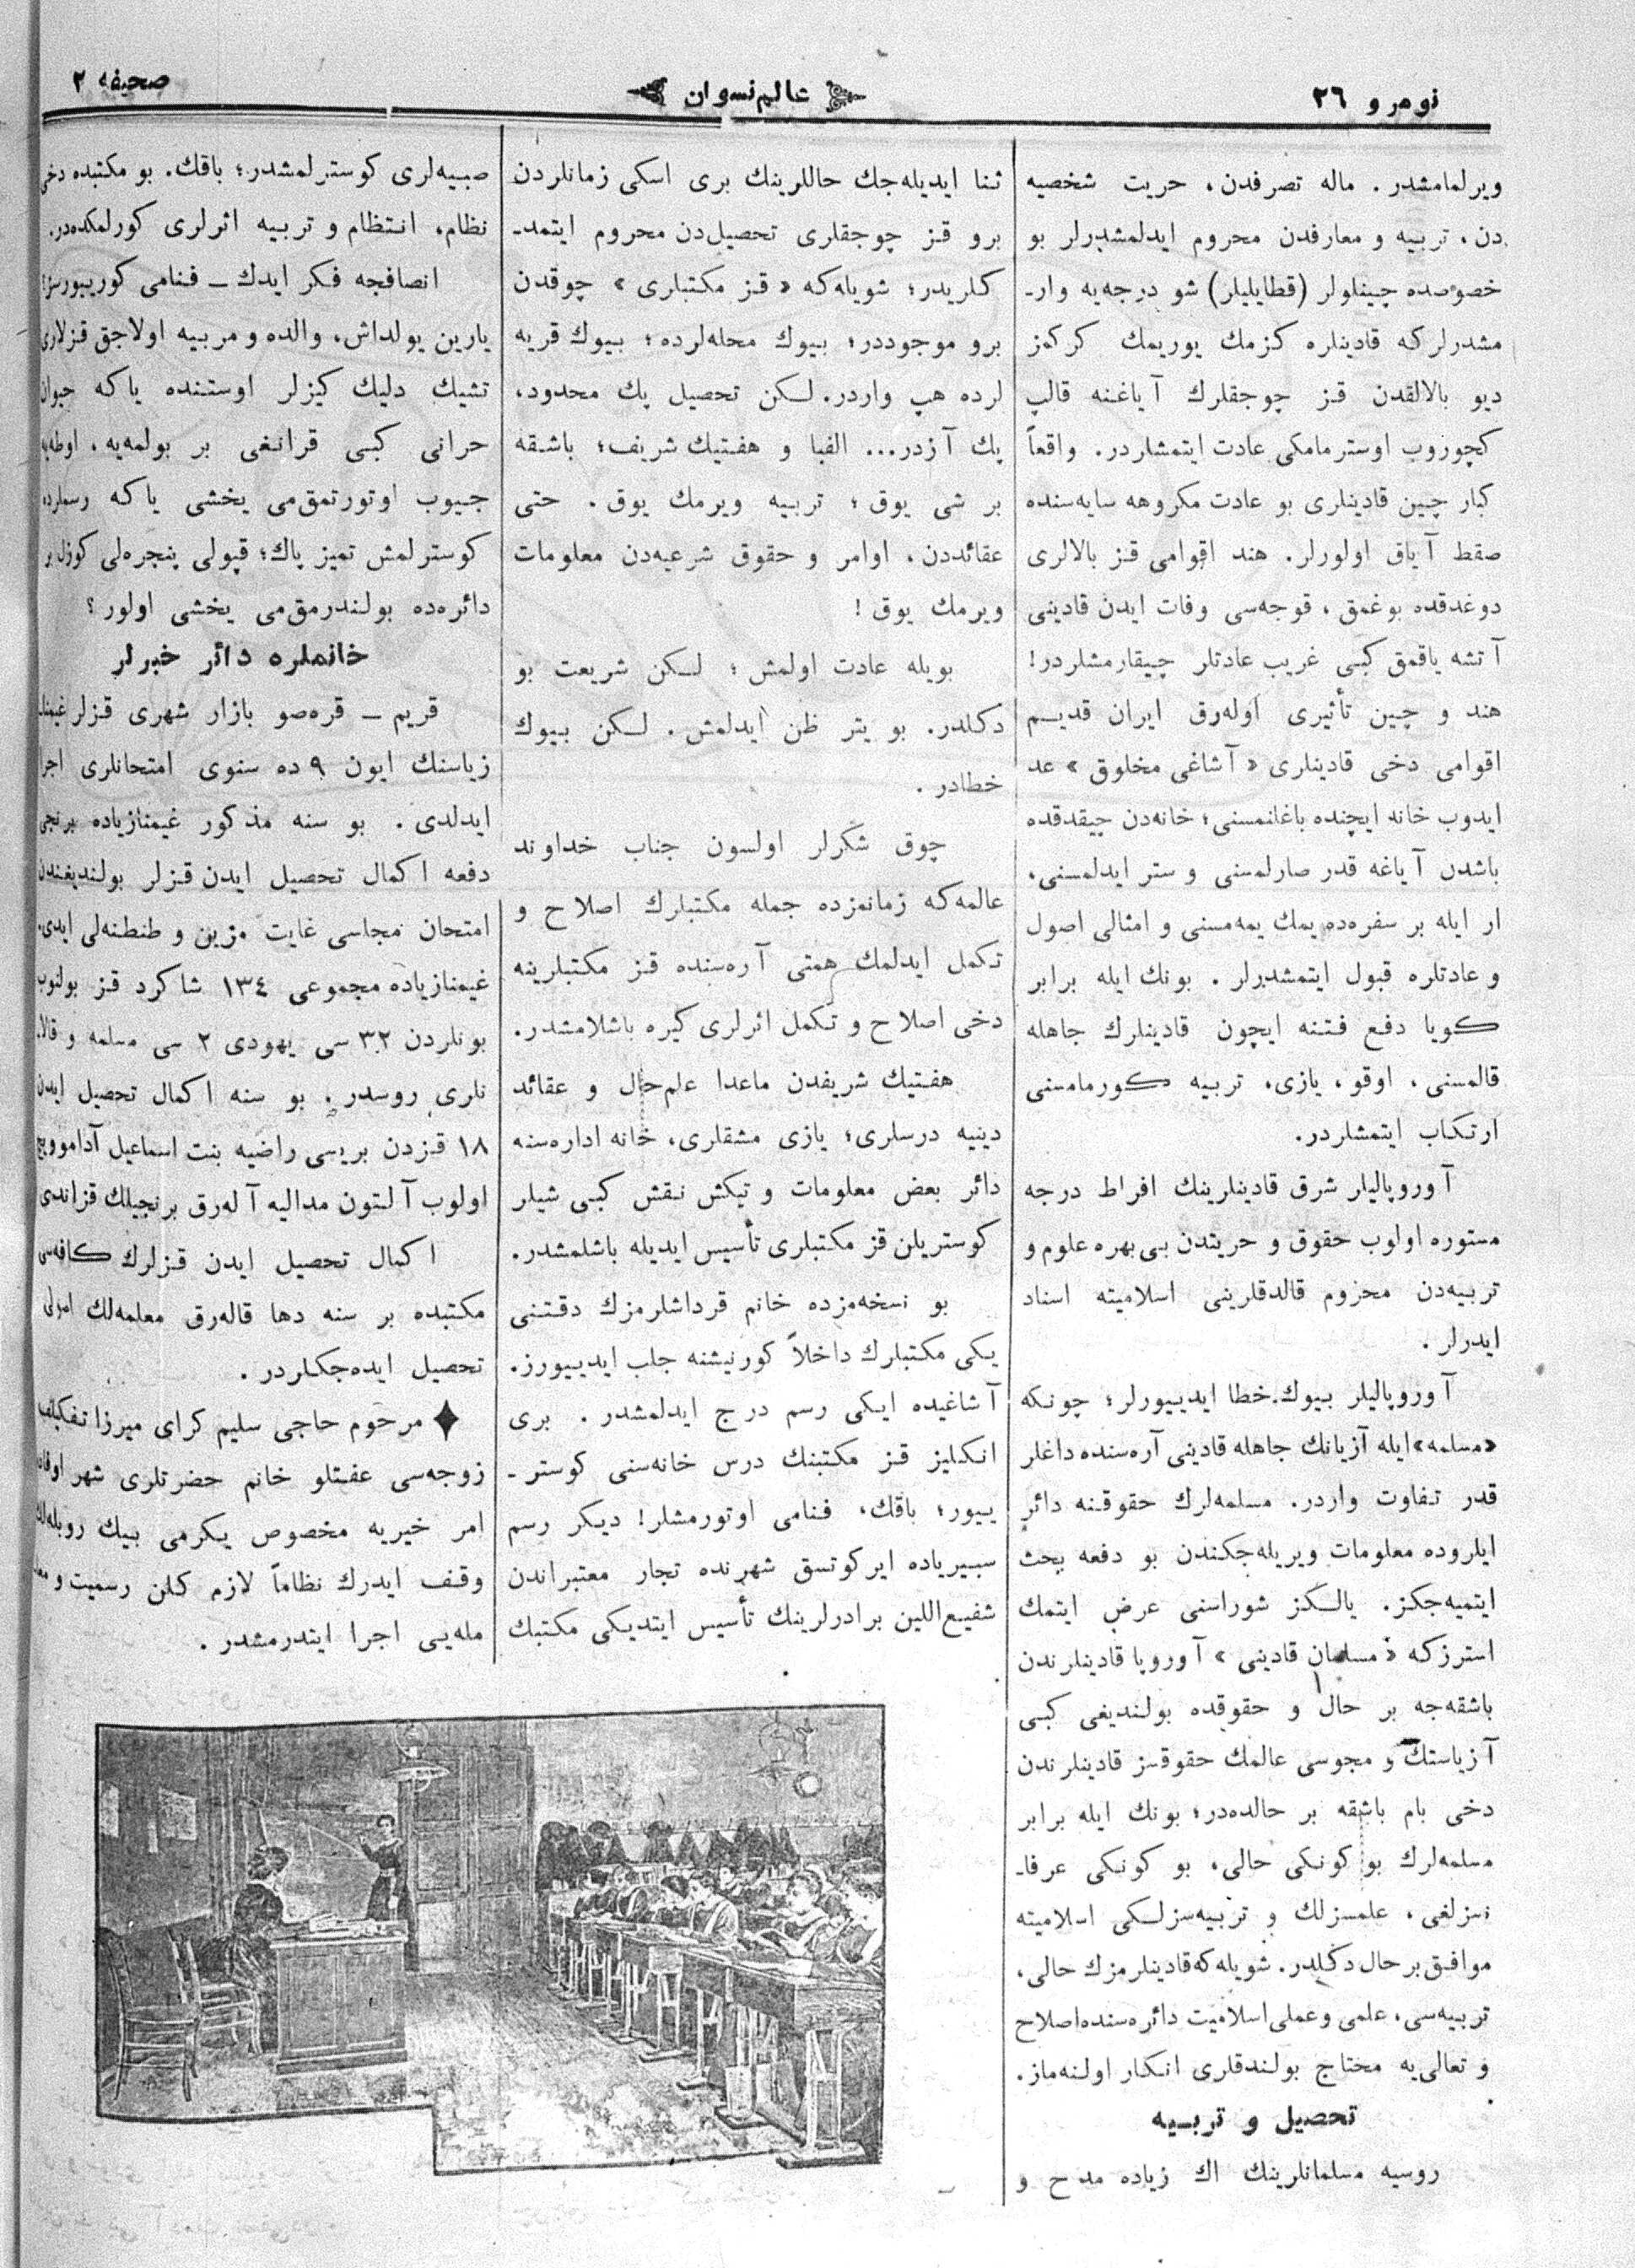 نومرو ٢٦
عالم نسوان
صحیفه ٢
ویرلمامشدر. ماله تصرفدن، حریت شخصیه
دن، تربیه و معارفدن محروم ایدلمشدرلر بو
خصوصده چینلولر (قطایلیلر) شو درجه‌یه وار-
مشدرلرکه قادینلره کزمك یوریمك کرکمز
دیو بالالقدن قز چوجقلرك آیاغنه قالپ
کچوروب اوسترمامکی عادت ایتمشلردر. واقعاً
کبار چین قادینلری بو عادت مکروهه سایه‌سنده
صقط آیاق اولورلر. هند اقوامی قز بالالری
دوغدقده بوغمق، قوجه‌سی وفات ایدن قادینی
آتشه یاقمق کبی غریب عادتلر چیقارمشلردر!
هند و چین تأثیری اوله‌رق ایران قدیم
اقوامی دخی قادینلری «آشاغی مخلوق» عد
ایدوب خانه ایچنده باغلانمسنی؛ خانه‌دن چیقدقده
باشدن آیاغه قدر صارلمسنی و ستر ایدلمسنی،
ار ایله بر سفره‌ده یمك یمه‌مسنی و امثالی اصول
و عادتلره قبول ایتمشدرلر. بونك ایله برابر
کویا دفع فتنه ایچون قادینلرك جاهله
قالمسنی، اوقو، یازی، تربیه کورمامسنی
ارتکاب ایتمشلردر.
آوروپالیلر شرق قادینلرینك افراط درجه
مستوره اولوب حقوق و حریتدن بی بهره علوم و
تربیه‌دن محروم قالدقلرینی اسلامیته اسناد
ایدرلر.
آوروپالیلر بیوك خطا ایدییورلر؛ چونکه
«مسلمه» ایله آزیانك جاهله قادینی آره‌سنده داغلر
قدر تفاوت واردر. مسلمه‌لرك حقوقنه دائر
ایلروده معلومات ویریله‌جکندن بو دفعه بحث
ایتمیه‌جکز. یالکز شوراسنی عرض ایتمك
استرزکه «مسلمان قادینی» آوروپا قادینلرندن
باشقه‌جه بر حال و حقوقده بولندیغی کبی
آزیاستك و مجوسی عالمك حقوقسز قادینلرندن
دخی بام باشقه بر حالده‌در؛ بونك ایله برابر
مسلمه‌لرك بو کونکی حالی، بو کونکی عرفا-
نسزلغی، علمسزلك و تربیه‌سزلکی اسلامیته
موافق بر حال دکلدر. شویله‌که قادینلرمزك حالی،
تربیه‌سی، علمی و عملی اسلامیت دائره‌سنده اصلاح
و تعالی‌یه محتاج بولندقلری انکار اولنه‌ماز.
تحصیل و تربیه
روسیه مسلمانلرینك اك زیاده مدح و
ثنا ایدیله‌جك حاللرینك بری اسکی زمانلردن
برو قز چوجقلری تحصیل‌دن محروم ایتمد-
کلریدر؛ شویله‌که «قز مکتبلری» چوقدن
برو موجوددر؛ بیوك محله‌لرده؛ بیوك قریه
لرده هپ واردر. لکن تحصیل پك محدود،
پك آزدر... الفبا و هفتیك شریف؛ باشقه
بر شی یوق؛ تربیه ویرمك یوق. حتی
عقائددن، اوامر و حقوق شرعیه‌دن معلومات
ویرمك یوق!
بویله عادت اولمش؛ لکن شریعت بو
دکلدر. بو یتر ظن ایدلمش. لکن بیوك
خطادر.
چوق شکرلر اولسون جناب خداوند
عالمه‌که زمانمزده جمله مکتبلرك اصلاح و
تکمل ایدلمك همتی آره‌سنده قز مکتبلرینه
دخی اصلاح و تکمل اثرلری کیره باشلامشدر.
هفتیك شریفدن ماعدا علم‌حال و عقائد
دینیه درسلری؛ یازی مشقلری، خانه اداره‌سنه
دائر بعض معلومات و تیکش نقش کبی شیلر
کوستریلن قز مکتبلری تأسیس ایدیله باشلمشدر.
بو نسخه‌مزده خانم قرداشلرمزك دقتنی
یکی مکتبلرك داخلاً کورنیشنه جلب ایدییورز.
آشاغیده ایکی رسم درج ایدلمشدر. بری
انکلیز قز مکتبنك درس خانه‌سنی کوستر-
ییور؛ باقك، فنامی اوتورمشلر! دیکر رسم
سیبریاده ایرکوتسق شهرنده تجار معتبراندن
شفیع‌اللین برادرلرینك تأسیس ایتدیکی مکتبك
صبیه‌لری کوسترلمشدر؛ باقك. بو مکتبده دخی
نظام، انتظام و تربیه اثرلری کورلمکده‌در.
انصافجه فکر ایدك - فنامی کورییورسز!
یارین یولداش، والده و مربیه اولاجق قزلاری
تشیك دلیك کیزلر اوستنده یاکه حیوان
حرانی کبی قرانغی بر بولمه‌یه، اوطه‌یه
جیوب اوتورتمق‌می یخشی یاکه رسملرده
کوسترلمش تمیز پاك؛ قپولی پنجره‌لی کوزل بر
دائره‌ده بولندرمق‌می یخشی اولور؟
خانملره دائر خبرلر
قریم - قره‌صو بازار شهری قزلر غیمنا-
زیاسنك ایون ٩ ده سنوی امتحانلری اجرا
ایدلدی. بو سنه مذکور غیمنازیاده برنجی
دفعه اکمال تحصیل ایدن قزلر بولندیغندن
امتحان مجلسی غایت مزین و طنطنه‌لی ایدی.
غیمنازیاده مجموعی ١٣٤ شاکرد قز بولنوب
بونلردن ٣٢ سی یهودی ٢ سی مسلمه و قالا-
نلری روسدر. بو سنه اکمال تحصیل ایدن
١٨ قزدن بریسی راضیه بنت اسماعیل آداموویچ
اولوب آلتون مدالیه آله‌رق برنجیلك قزاندی
اکمال تحصیل ایدن قزلرك کافه‌سی
مکتبده بر سنه دها قاله‌رق معلمه‌لك اصولی
تحصیل ایده‌جکلردر.
مرحوم حاجی سلیم کرای میرزا تفکیلف
زوجه‌سی عفتلو خانم حضرتلری شهر اوفاده
امر خیریه مخصوص یکرمی بیك روبله‌لك
وقف ایدرك نظاماً لازم کلن رسمیت و معا
مله‌یی اجرا ایتدرمشدر.